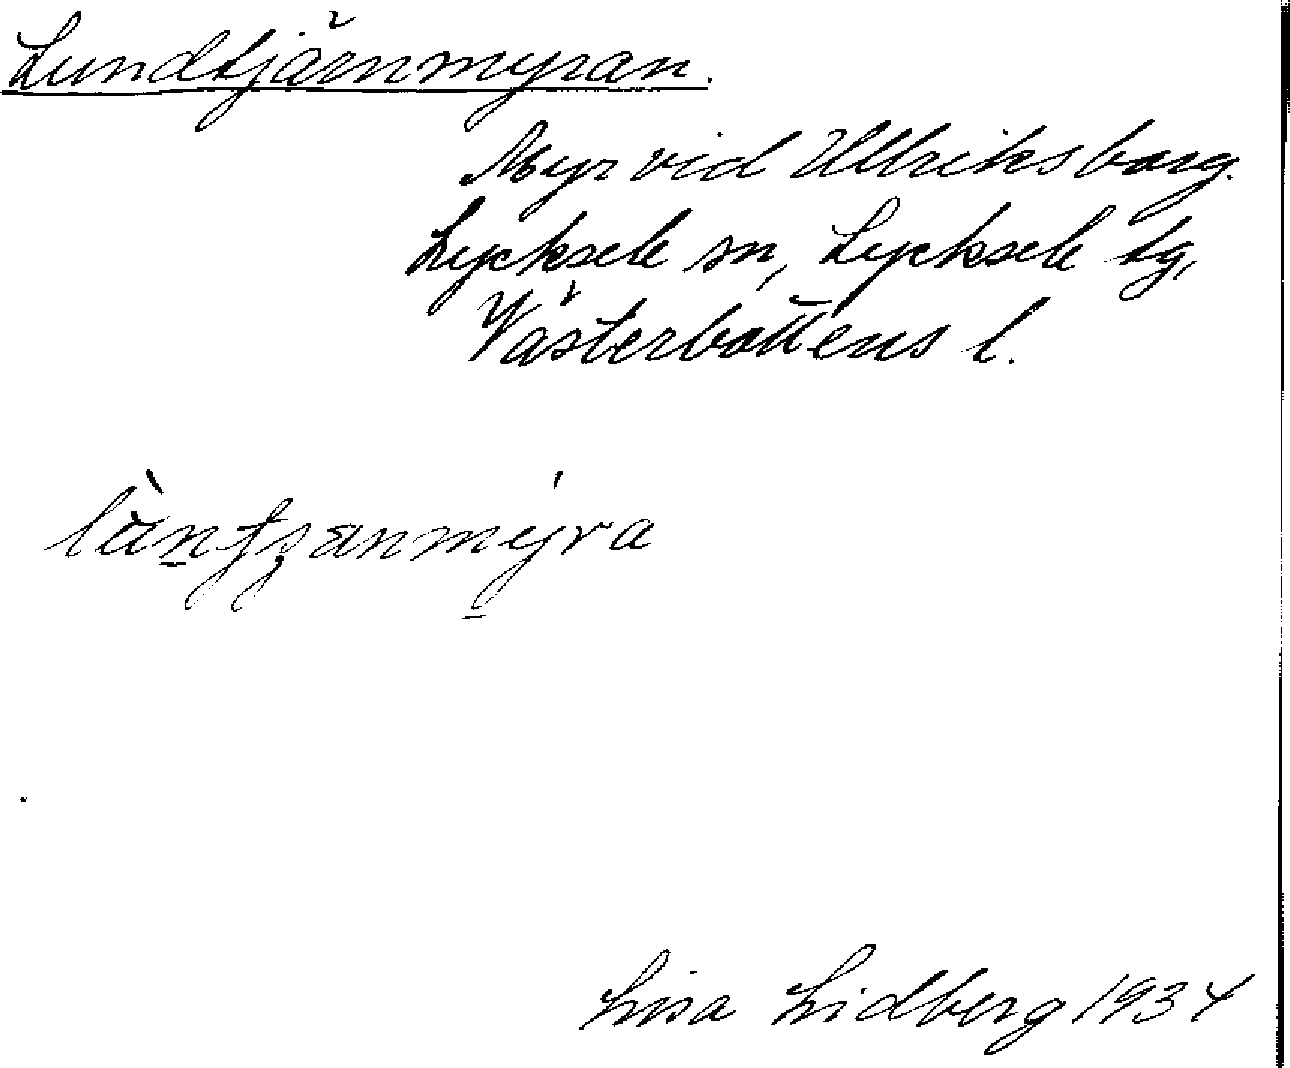 Lundtjärnmyran.
Myr vid Ullriksborg.
Lycksele sn, Lycksele tg,
Västerbottens l.
Lisa Lidberg 1934